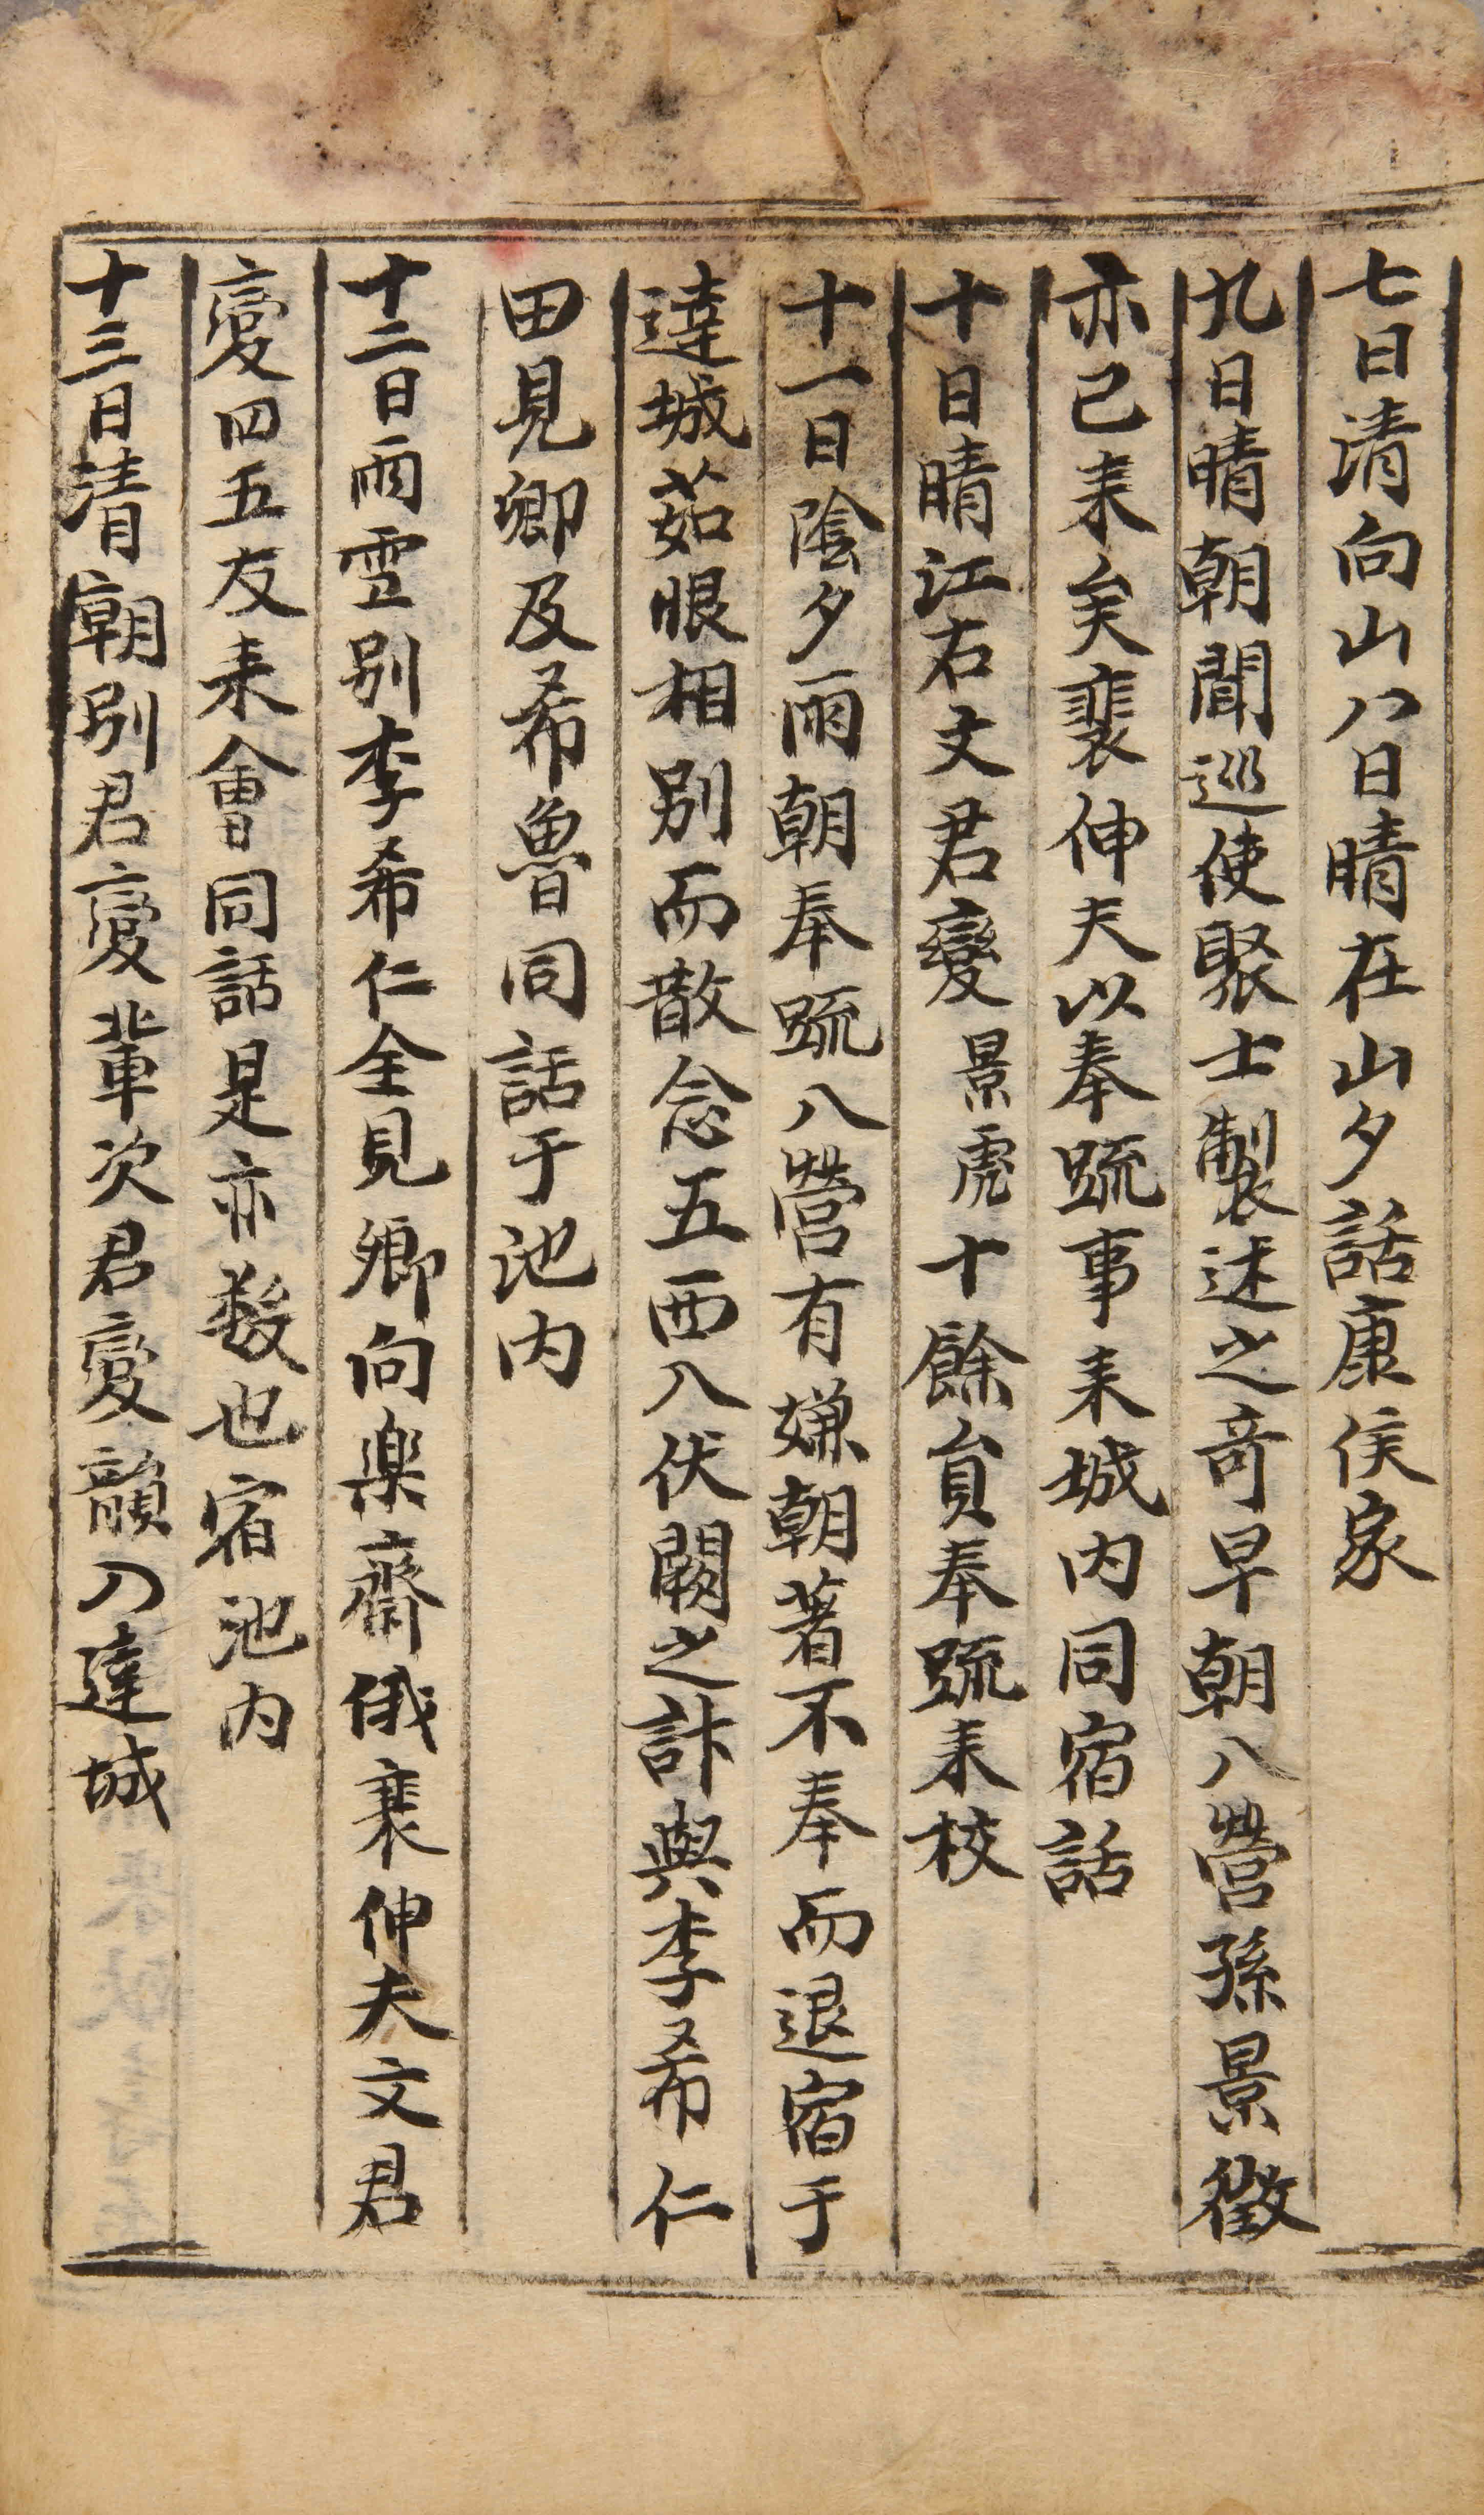 七日清向山八日晴在山夕話康侯家
九日晴朝聞巡使聚士製述之奇早朝八營孫景徵
亦已来矣裴伸夫以奉疏事来城内同宿話
十日晴江右文君變景虎十餘員奉疏来校
十一日陰夕雨朝奉疏八營有嫌朝著不奉而退宿于
達城茹恨相別而散念五西八伏闕之計與李希仁
田見卿及希魯同話于池内
十二日雨雪别李希仁全見卿向楽齋俄裴伸夫文君
變四五友来會同話是亦数也宿池内
十三日清朝别君變輩次君變韻入達城